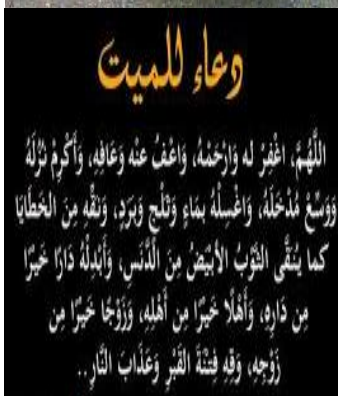 دعاء للميت
اللَّهُمَّ، اغْفِرْ له وَارْحَمْهُ، وَاعْفُ عنْه وَعَافِهِ، وَأَكْرِمْ نُزُلَهُ
وَوَسِّعْ مُدْخَلَهُ، وَاغْسِلْهُ بمَاءٍ وَثَلْجٍ وَبَرَدٍ، وَنَقِّهِ مِنَ الخَطَايَا
كما يُنَقَّى الثَّوْبُ الأبْيَضُ مِنَ الدَّنَسِ، وَأَبْدِلْهُ دَارًا خَيْرًا
مِن دَارِهِ، وَأَهْلًا خَيْرًا مِن أَهْلِهِ، وَزَوْجًا خَيْرًا مِن
زَوْجِهِ، وَقِهِ فِتْنَةَ القَبْرِ وَعَذَابَ النَّارِ..